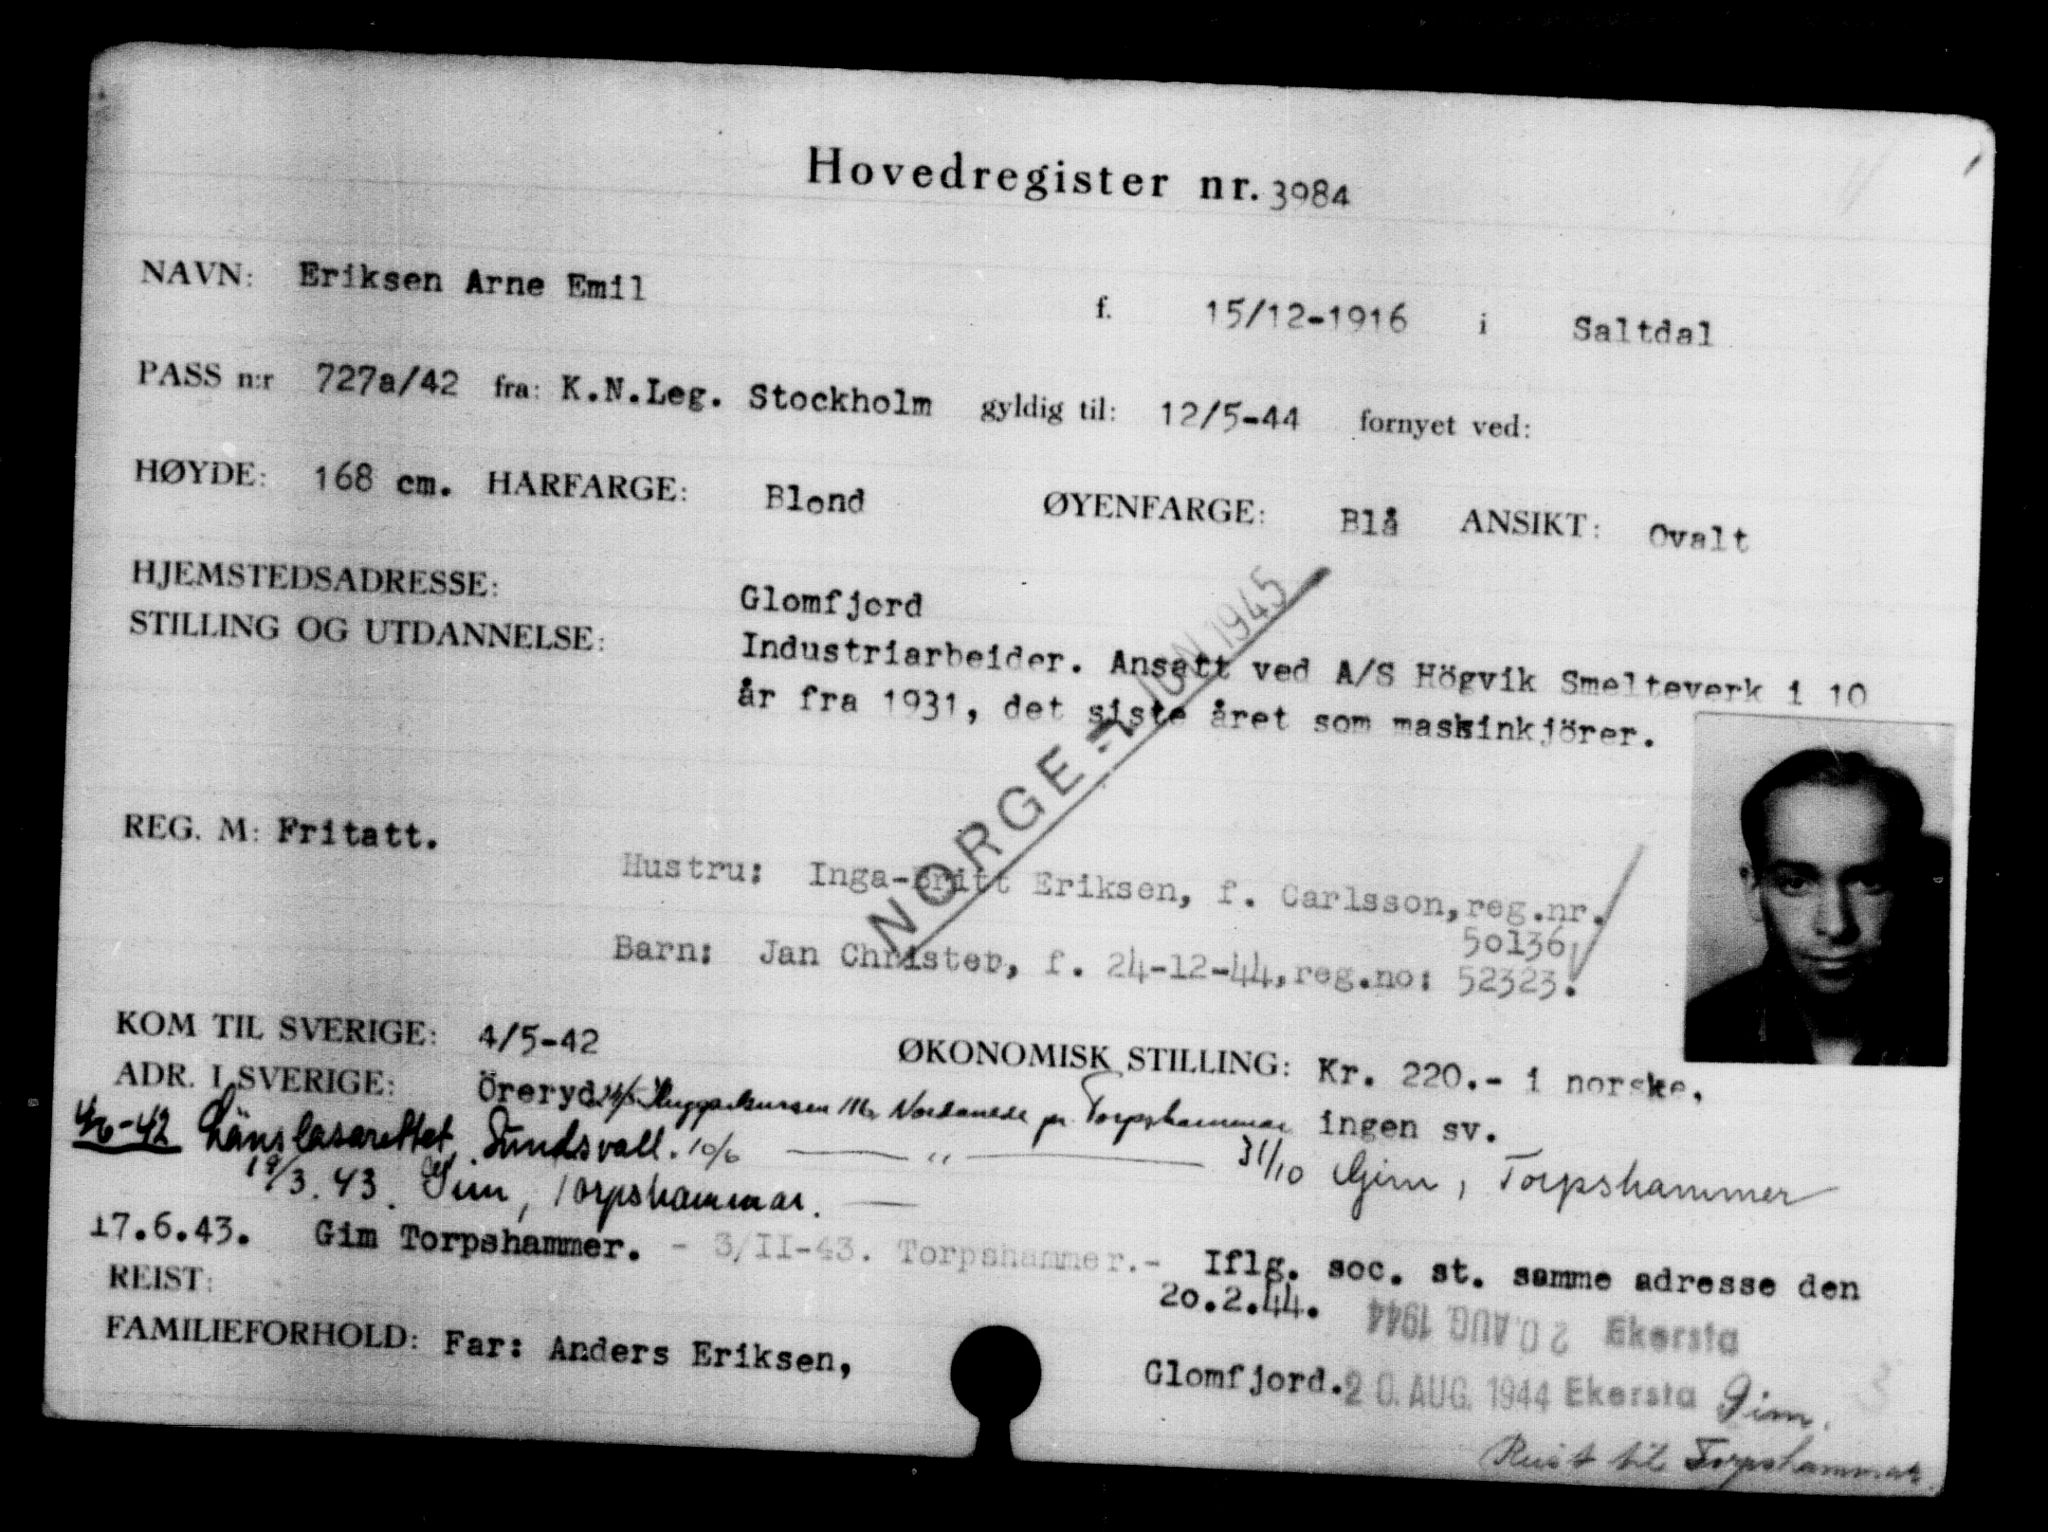 Hovedregister nr. 3984
NAVN: Eriksen Arne Emil f. 15/12-1916 i Saltdal
PASS n:r 727a/42 fra: K.N.Leg. Stockholm gyldig til: 12/5-44 fornyet ved:
HØYDE: 168 cm. HARFARGE: Blond ØYENFARGE: Blå ANSIKT: Ovalt
HJEMSTEDSADRESSE: Glomfjord
STILLING OG UTDANNELSE: Industriarbeider. Ansatt ved A/S Högvik Smelteverk i 10
år fra 1931, det siste året som maskinkjörer.
NORGE - JUN 1945
REG. M: Fritatt.
Hustru: Inga-Britt Eriksen, f. Carlsson, reg.nr.
50136,
Barn: Jan Christer, f. 24-12-44, reg.no: 52323.
KOM TIL SVERIGE: 4/5-42 ØKONOMISK STILLING: Kr. 220.- i norske.
ADR. I SVERIGE: Öreryd. Huggarkursen Nordanede pr. Torpshammar ingen sv.
4/6-42 Länslasarettet, Sundsvall. 10/6 — " — 31/10 Gim, Torpshammer
19/3.43. Gim, Torpshammar. —
17.6.43. Gim Torpshammer. - 3/II-43. Torpshammer.- Iflg. soc. st. samme adresse den
20.2.44. 20. AUG. 1944 Ekersta
REIST:
FAMILIEFORHOLD: Far: Anders Eriksen, Glomfjord. 20. AUG. 1944 Ekersta Gim.
Reist til Torpshammar.